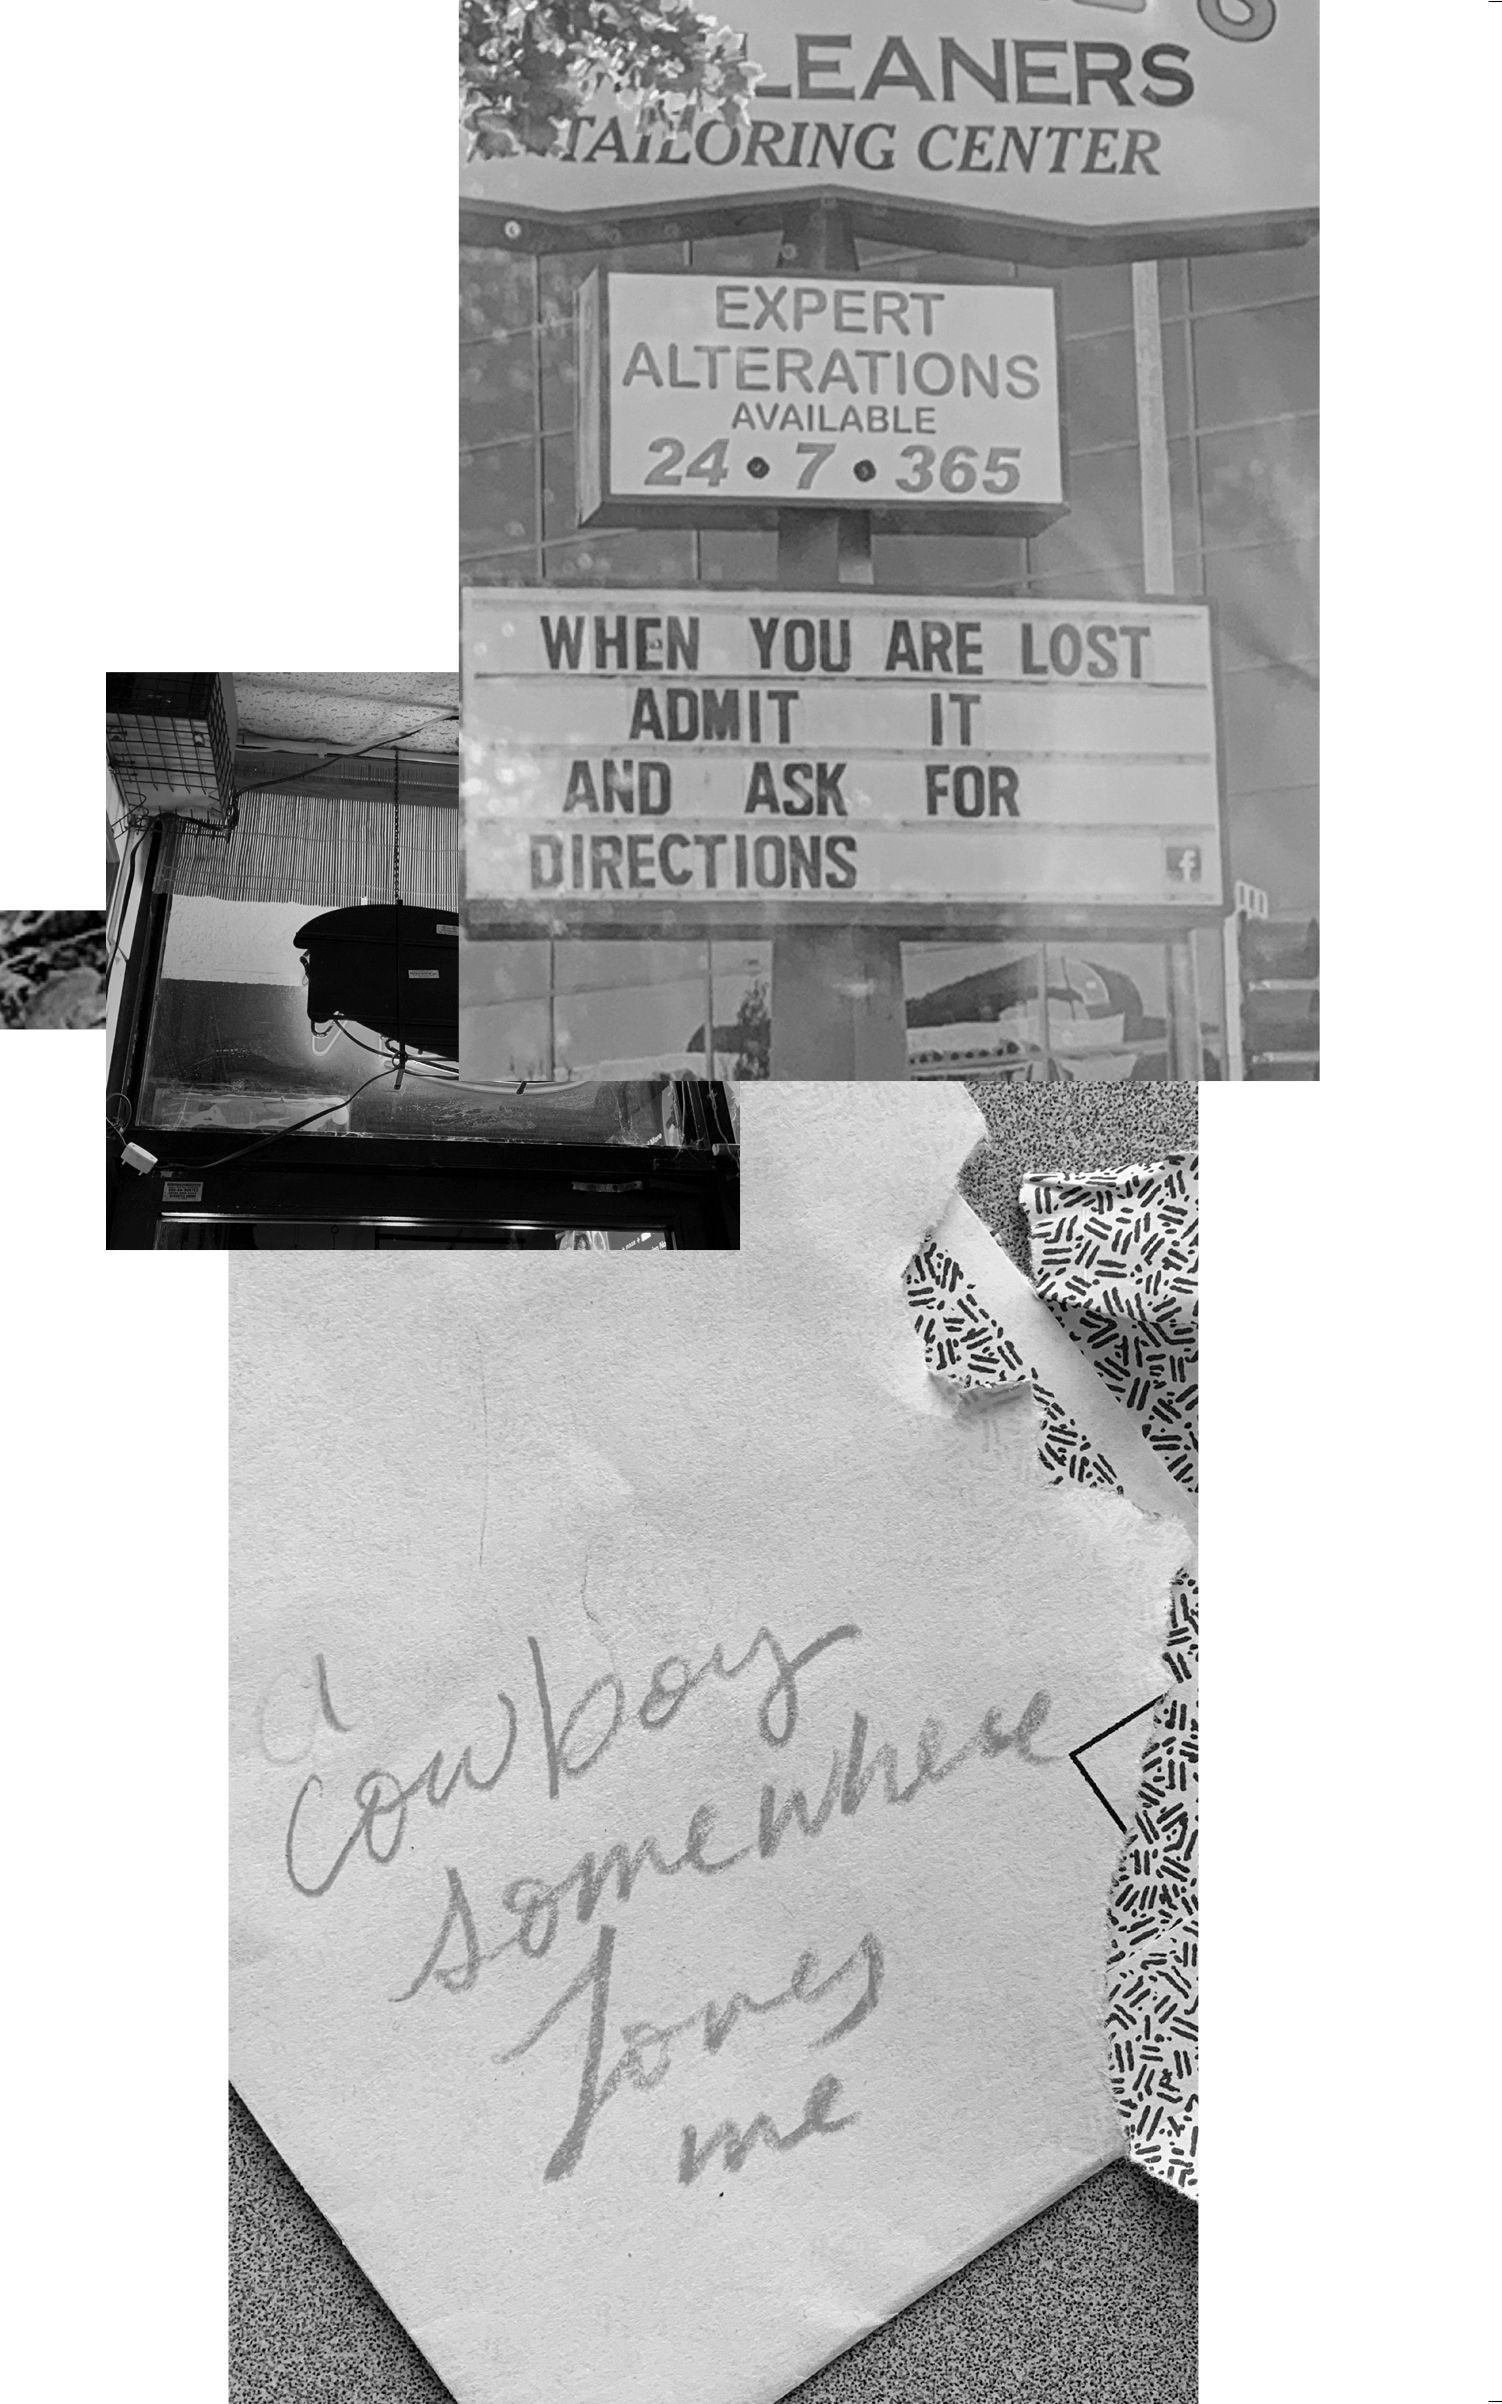 LEANERS
TAILORING CENTER
EXPERT
ALTERATIONS
AVAILABLE
24 • 7 • 365
WHEN YOU ARE LOST
ADMIT IT
AND ASK FOR
DIRECTIONS
f
a
cowboy
somewhere
loves
me